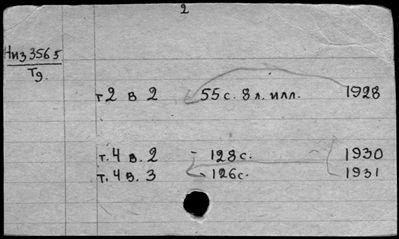 2
Низ 3565
Тд.
т2 в 2 55 с. 8 л. илл. 1928
т. 4 в. 2 - 128 с. 1930
т. 4 в. 3 - 126 с. 1931